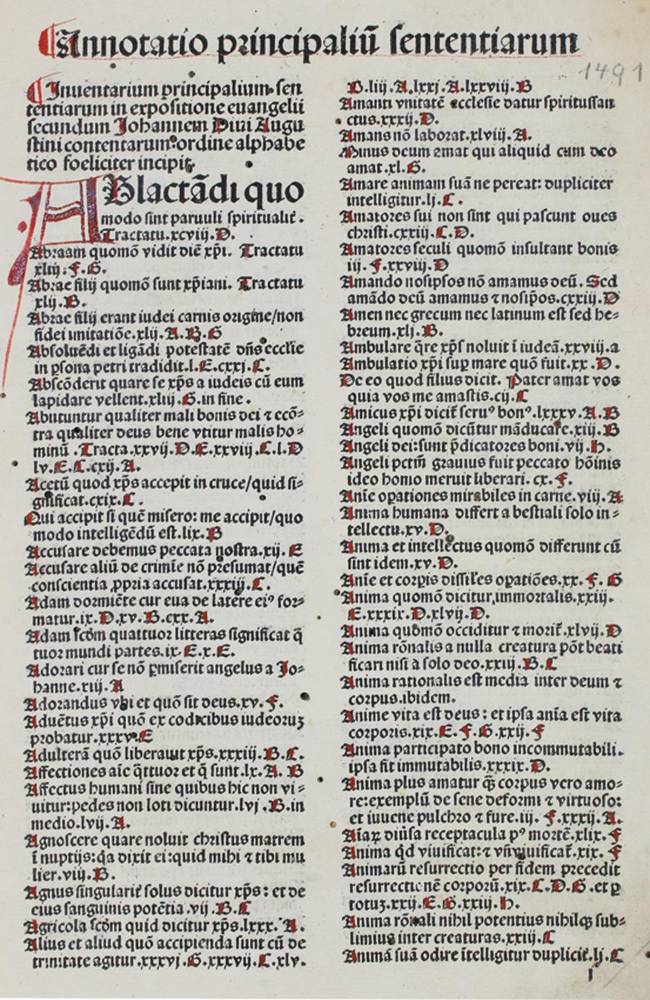 Annotatio principaliū sententiarum
1491
Inuentarium principalium sen
tentiarum in expositione euangelii
secundum Johannem Diui Augu
stini contentarum ordine alphabe
tico foeliciter incipit.
ABlactādi quo
modo sint paruuli spiritualit̄.
Tractatu.xcviij.D.
Abraam quomō vidit diē xp̄i. Tractatu
xliij.F.G.
Abrae filij quomō sunt xp̄iani. Tractatu
xlij.B.
Abrae filij erant iudei carnis origine/non
fidei imitatiōe.xlij.A.B.G
Absoluēdi et ligādi potestatē dn̄s ecclīe
in ꝑsona petri tradidit.l.E.cxxj.C.
Abscōderit quare se xp̄s a iudeis cū eum
lapidare vellent.xliij.G.in fine.
Abutuntur qualiter mali bonis dei ⁊ ecō⸗
tra qualiter deus bene vtitur malis ho⸗
minū .Tracta.xxvij.D.E.xxviij.C.l.D
lv.E.C.cxij.A.
Acetū quod xp̄s accepit in cruce/quid si⸗
gnificat.cxix.C.
Qui accipit si quē misero: me accipit/quo
modo intelligēdū est.lix.B
Accusare debemus peccata nostra.xij.E
Accusare aliū de crimīe nō presumat/quē
conscientia ꝓpria accusat.xxxiij.C.
Adam dormiēte cur eua de latere eiꝰ for⸗
matur.ix.D.xv.B.cxx.A.
Adam scd̄m quattuor litteras significat q̄
tuor mundi partes.ix.E.x.E.
Adorari cur se nō ꝑmiserit angelus a Jo⸗
hanne.xiij.A
Adorandus vbi et quō sit deus.xv.F.
Aduētus xp̄i quō ex codicibus iudeoruꝫ
probatur.xxxv.E
Adulterā quō liberauit xp̄s.xxxiij.B.C.
Affectiones aīe q̄ttuor et q̄ sunt.lx.A.B
Affectus humani sine quibus hic non vi⸗
uitur:pedes non loti dicuntur.lvj.B.in
medio.lvij.A.
Agnoscere quare noluit christus matrem
ī nuptijs:q̄a dixit ei:quid mihi ⁊ tibi mu
lier.viij.B.
Agnus singularit̄ solus dicitur xp̄s: et de
eius sanguinis potētia.vij.B.C
Agricola scd̄m quid dicitur xp̄s.lxxx.A.
Alius et aliud quō accipienda sunt cū de
trinitate agitur.xxxvj.G.xxxvij.C.xlv.
B.liij.A.lxxj.A.lxxviij.B
Amanti vnitatē ecclesie datur spiritussan
ctus.xxxij.D.
Amans nō laborat.xlviij.A.
Minus deum amat qui aliquid cum deo
amat.xl.G.
Amare animam suā ne pereat: dupliciter
intelligitur.lj.C.
Amatores sui non sint qui pascunt oues
christi.cxxiij.C.D.
Amatores seculi quomō insultant bonis
iij.F.xxviij.D
Amando nosipsos nō amamus deū. Sed
amādo deū amamus ⁊ nosip̄os.cxxiij.D
Amen nec grecum nec latinum est sed he⸗
breum.xlj.B.
Ambulare q̄re xp̄s noluit ī iudeā.xxviij.a
Ambulatio xp̄i suꝑ mare quō fuit.xx.D.
De eo quod filius dicit. Pater amat vos
quia vos me amastis.cij.C
Amicus xp̄i dicit̄ seruꝰ bonꝰ.lxxxv.A.B
Angeli quomō dicūtur māducare.xiij.B
Angeli dei:sunt p̄dicatores boni.vij.H.
Angeli pctm̄ grauius fuit peccato hōinis
ideo homo meruit liberari.cx.F.
Anīe oꝑationes mirabiles in carne.viij.A
Anima humana differt a bestiali solo in⸗
tellectu.xv.D.
Anima et intellectus quomō differunt cū
sint idem.xv.D.
Anīe et corꝑis dissīles oꝑatiōes.xx.F.G
Anima quomō dicitur immortalis.xxiij.
E.xxxix.D.xlvij.D.
Anima quōmō occiditur ⁊ morit̄.xlvij.D
Anima rōnalis a nulla creatura pōt beati
ficari nisi à solo deo.xxiij.B.C
Anima rationalis est media inter deum ⁊
corpus.ibidem.
Anime vita est deus: et ipsa anīa est vita
corporis.xix.E.F.G.xxij.F
Anima participato bono incommutabili.
ipsa fit immutabilis.xxxix.D.
Anima plus amatur q̄ꝫ corpus vero amo⸗
re:exemplū de sene deformi ⁊ virtuoso:
et iuuene pulchro ⁊ fure.iij.F.xxxij.A.
Aīaꝝ diūsa receptacula pꝰ mortē.xlix.F
Anima q̄d viuificat:⁊ vn̄ viuificat̄.xix.F
Animarū resurrectio per fidem precedit
resurrectionēm corporū.xix.C.D.G.et ꝑ
totuꝫ.xxij.E.G.xxiij.H.
Anima rōnali nihil potentius nihilqꝫ sub⸗
limius inter creaturas.xxiij.C
Animā suā odire ītelligitur duplicit̄.lj.C
1